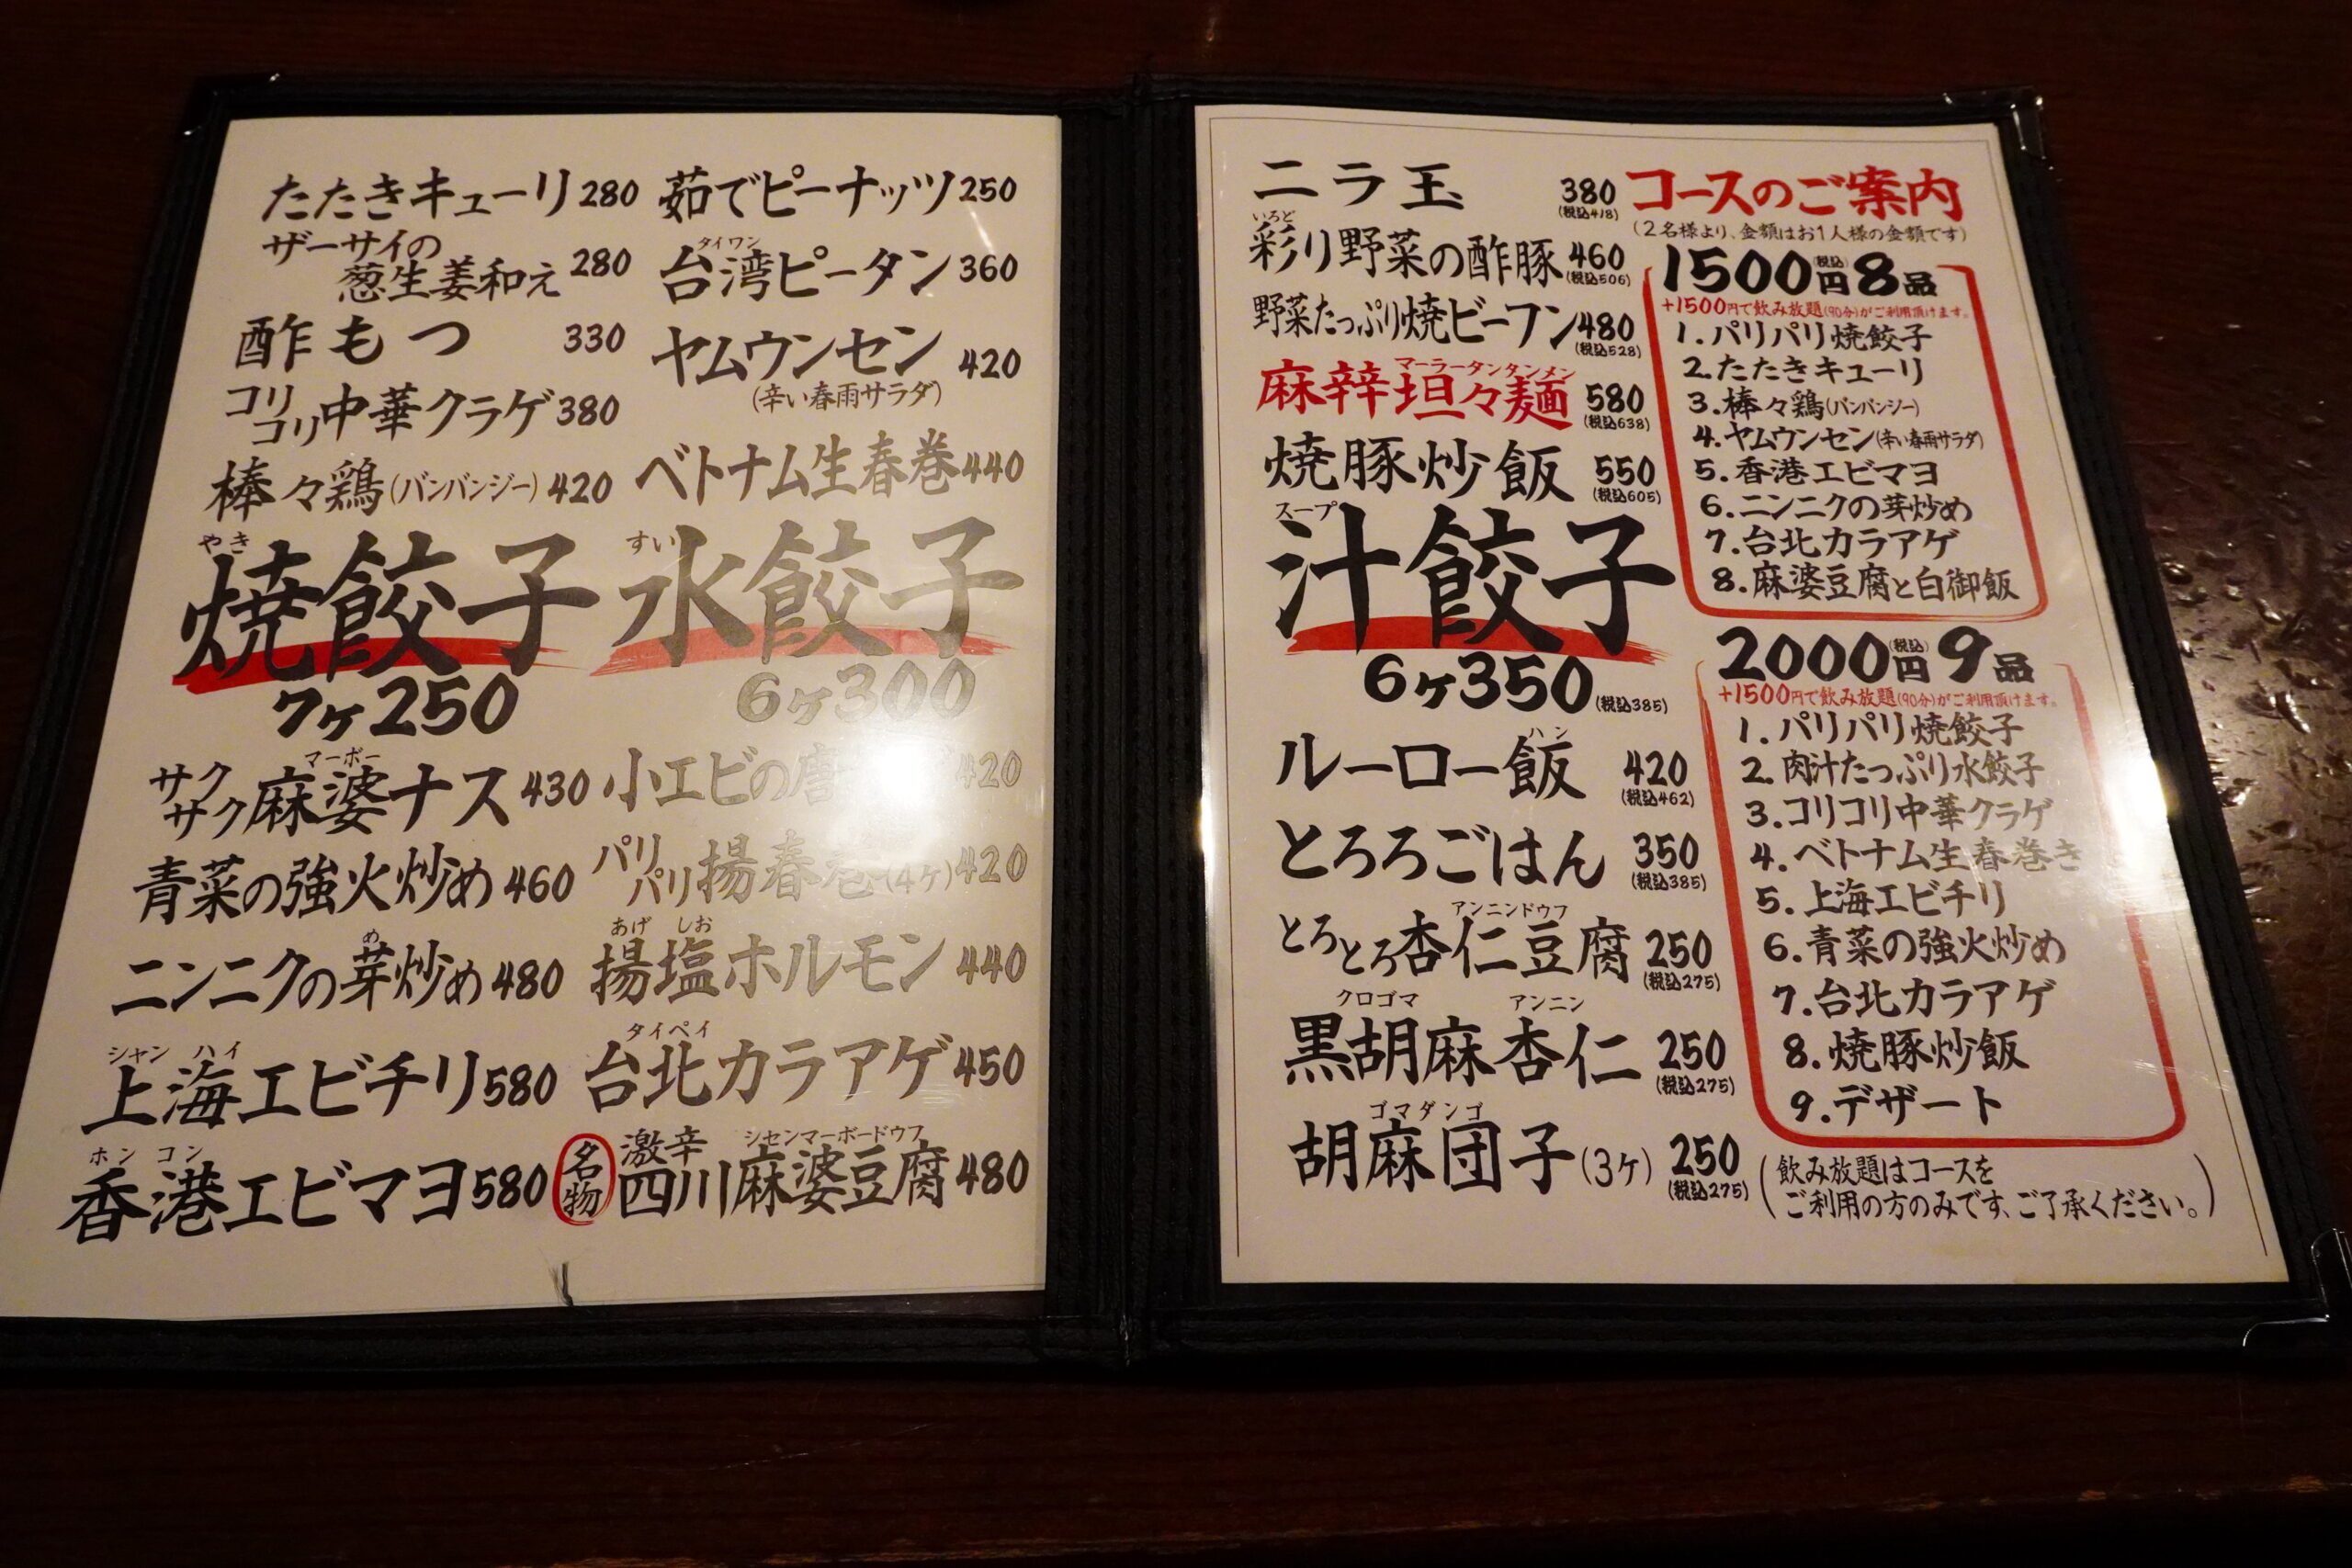 たたきキューリ 280
ザーサイの
葱生姜和え 280
酢もつ 330
コリコリ中華クラゲ 380
棒々鶏(バンバンジー) 420
やき
焼餃子
7ヶ250
マーボー
サクサク麻婆ナス 430
青菜の強火炒め 460
め
ニンニクの芽炒め 480
シャン ハイ
上海エビチリ 580
ホン コン
香港エビマヨ 580
茹でピーナッツ 250
タイワン
台湾ピータン 360
ヤムウンセン 420
(辛い春雨サラダ)
ベトナム生春巻 440
すい
水餃子
6ヶ300
小エビの唐 420
パリパリ揚春巻(4ヶ) 420
あげ しお
揚塩ホルモン 440
タイペイ
台北カラアゲ 450
シセンマーボードウフ
名物 激辛 四川麻婆豆腐 480
ニラ玉 380
(税込418)
いろど
彩り野菜の酢豚 460
(税込506)
野菜たっぷり焼ビーフン 480
(税込528)
マーラータンタンメン
麻辛坦々麺 580
(税込638)
焼豚炒飯 550
(税込605)
スープ
汁餃子
6ヶ350(税込385)
ハン
ルーロー飯 420
(税込462)
とろろごはん 350
(税込385)
アンニンドウフ
とろとろ杏仁豆腐 250
(税込275)
クロゴマ アンニン
黒胡麻杏仁 250
(税込275)
ゴマダンゴ
胡麻団子(3ヶ) 250
(税込275)
コースのご案内
(2名様より、金額はお1人様の金額です)
1500円税込8品
+1500円で飲み放題(90分)がご利用頂けます。
1.パリパリ焼餃子
2.たたきキューリ
3.棒々鶏(バンバンジー)
4.ヤムウンセン(辛い春雨サラダ)
5.香港エビマヨ
6.ニンニクの芽炒め
7.台北カラアゲ
8.麻婆豆腐と白御飯
2000円税込9品
+1500円で飲み放題(90分)がご利用頂けます。
1.パリパリ焼餃子
2.肉汁たっぷり水餃子
3.コリコリ中華クラゲ
4.ベトナム生春巻き
5.上海エビチリ
6.青菜の強火炒め
7.台北カラアゲ
8.焼豚炒飯
9.デザート
(飲み放題はコースを
ご利用の方のみです、ご了承ください。)